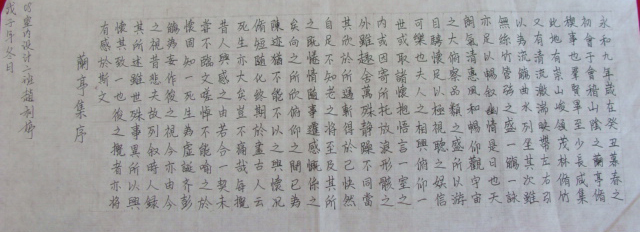 永和九年歲在癸丑暮春之
初會于會稽山陰之蘭亭脩
禊事也羣賢畢至少長咸集
此地有崇山峻嶺茂林脩竹
又有清流激湍映帶左右引
以為流觴曲水列坐其次雖
無絲竹管絃之盛一觴一詠
亦足以暢敘幽情是日也天
朗氣清惠風和暢仰觀宇宙
之大俯察品類之盛所以游
目騁懷足以極視聽之娛信
可樂也夫人之相與俯仰一
世或取諸懷抱悟言一室之
內或因寄所托放浪形骸之
外雖趣舍萬殊靜躁不同當
其欣於所遇暫得於己快然
自足不知老之將至及其所
之既惓情隨事遷感慨係之
矣向之所欣俛仰之間已為
陳迹猶不能不以之興懷況
脩短隨化終期於盡古人云
死生亦大矣豈不痛哉每攬
昔人興感之由若合一契未
嘗不臨文嗟悼不能喻之於
懷固知一死生為虛誕齊彭
殤為妄作後之視今亦由今
之視昔悲夫故列敘時人錄
其所述雖世殊事異所以興
懷其致一也後之攬者亦將
有感於斯文
蘭亭集序
室內设计二班趙利
戊子年冬日